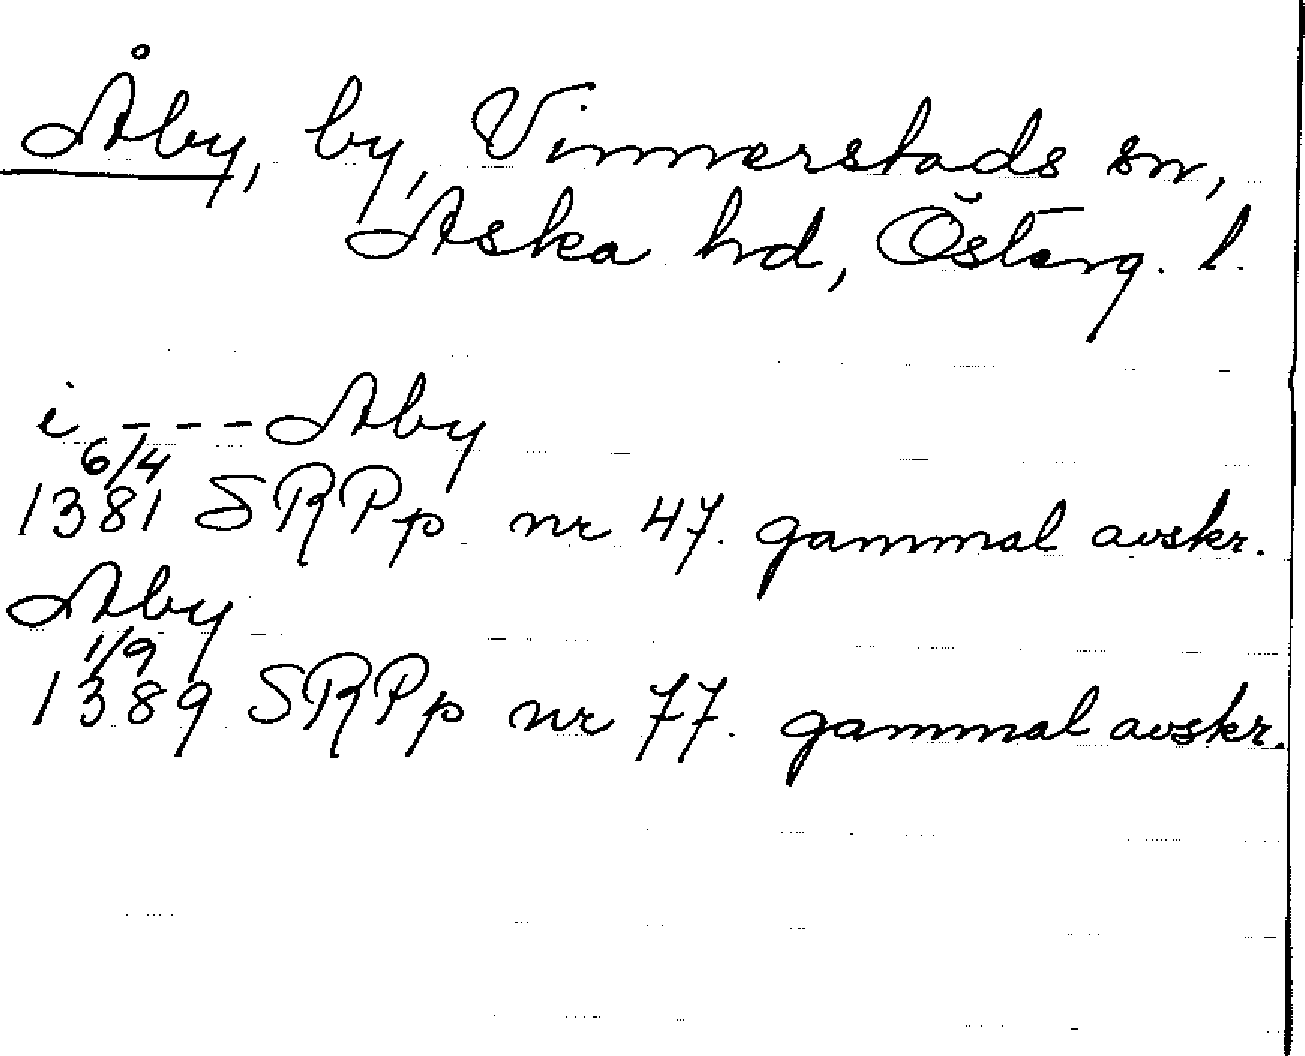 Åby, by, Vinnerstads sn,
Aska hd, Österg. l.
i - - - - Aby
6/4
1381 SRPp nr 47. gammal avskr.
Aby
1/9
1389 SRPp nr 77. gammal avskr.